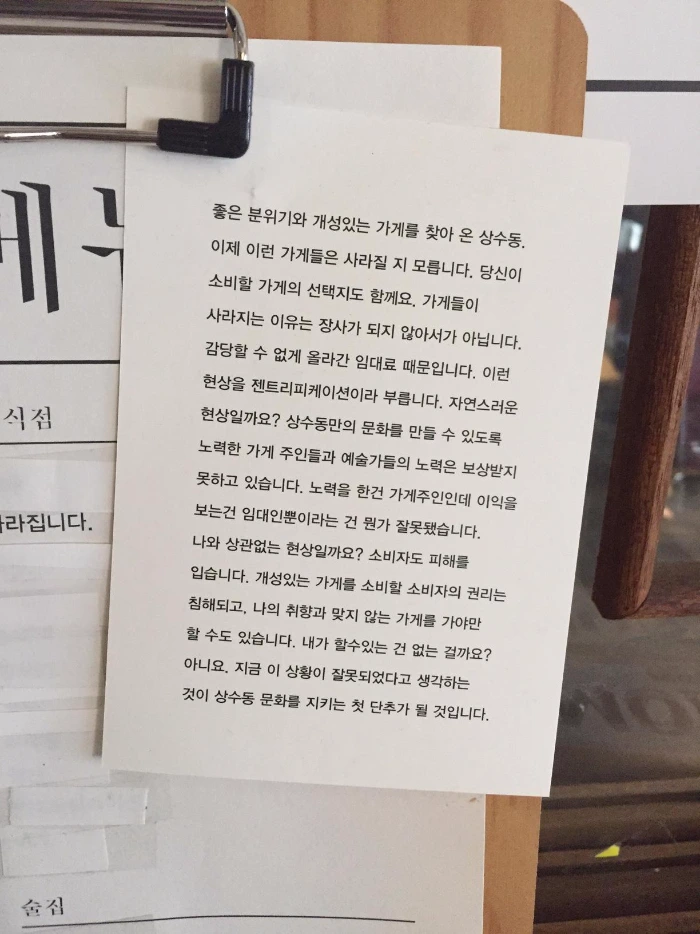 메뉴
식점
라집니다.
술집
좋은 분위기와 개성있는 가게를 찾아 온 상수동.
이제 이런 가게들은 사라질 지 모릅니다. 당신이
소비할 가게의 선택지도 함께요. 가게들이
사라지는 이유는 장사가 되지 않아서가 아닙니다.
감당할 수 없게 올라간 임대료 때문입니다. 이런
현상을 젠트리피케이션이라 부릅니다. 자연스러운
현상일까요? 상수동만의 문화를 만들 수 있도록
노력한 가게 주인들과 예술가들의 노력은 보상받지
못하고 있습니다. 노력을 한건 가게주인인데 이익을
보는건 임대인뿐이라는 건 뭔가 잘못됐습니다.
나와 상관없는 현상일까요? 소비자도 피해를
입습니다. 개성있는 가게를 소비할 소비자의 권리는
침해되고, 나의 취향과 맞지 않는 가게를 가야만
할 수도 있습니다. 내가 할수있는 건 없는 걸까요?
아니요. 지금 이 상황이 잘못되었다고 생각하는
것이 상수동 문화를 지키는 첫 단추가 될 것입니다.